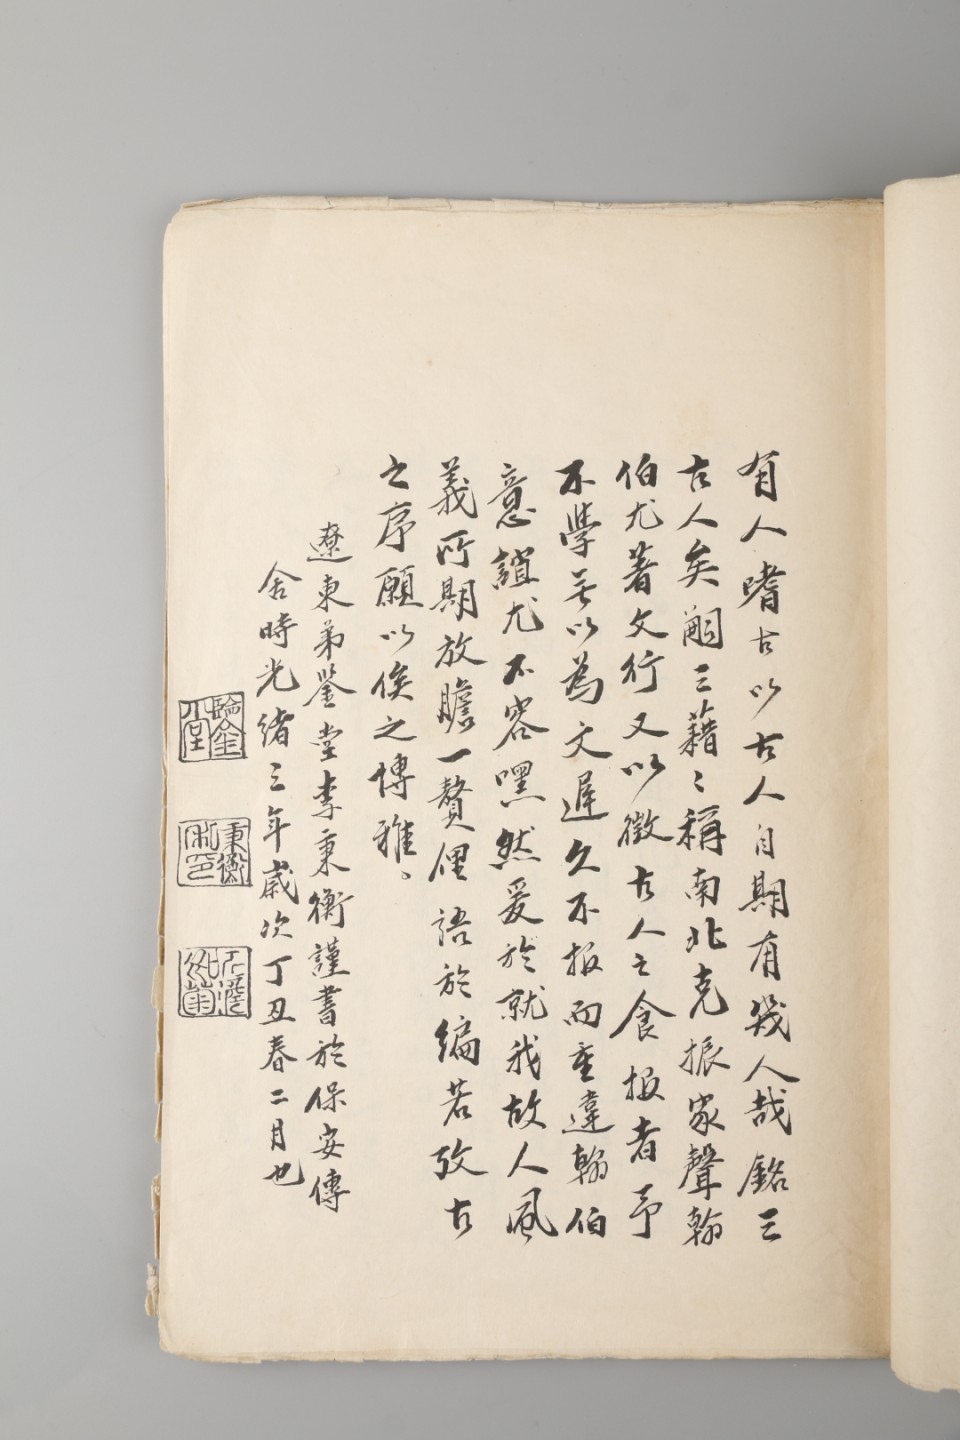 有人嗜古以古人自期有幾人哉銘三
古人矣嗣三藉〻稱南北克振家聲翰
伯尤著文行又以徵古人之食报者予
不學無以為文遲久不报而重違翰伯
意誼尤不容嘿然爰於就我故人風
義所期放膽一贅俚語於編若攷古
之序願以俟之博雅〻
遼東弟鑒堂李秉衡謹書於保安傳
舍時光緒三年歲次丁丑春二月也
秉衡